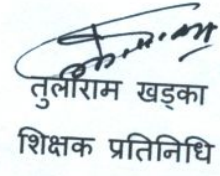 तुलाराम खड्का
शिक्षक प्रतिनिधि